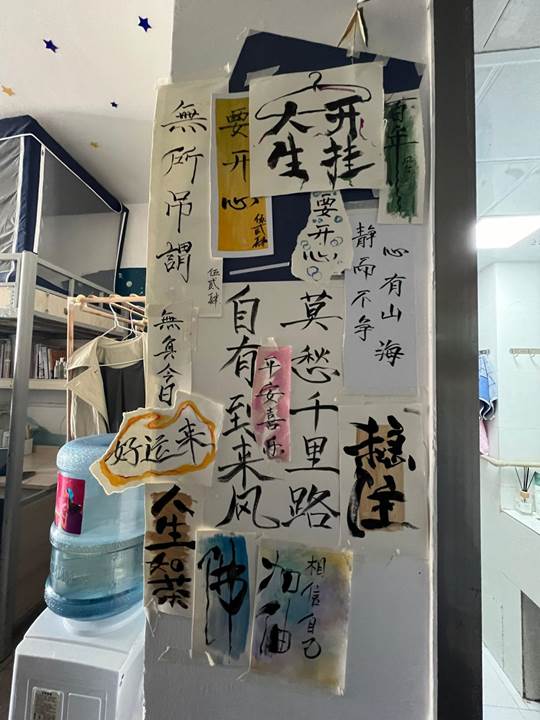 無所吊謂
伍貳肆
要开心
伍贰肆
开挂
人生
百年
要开心
心有山海
静而不争
無負今日
莫愁千里路
自有到来风
平安喜乐
好运来
稳住
人生如茶
佛
加油
相信自己